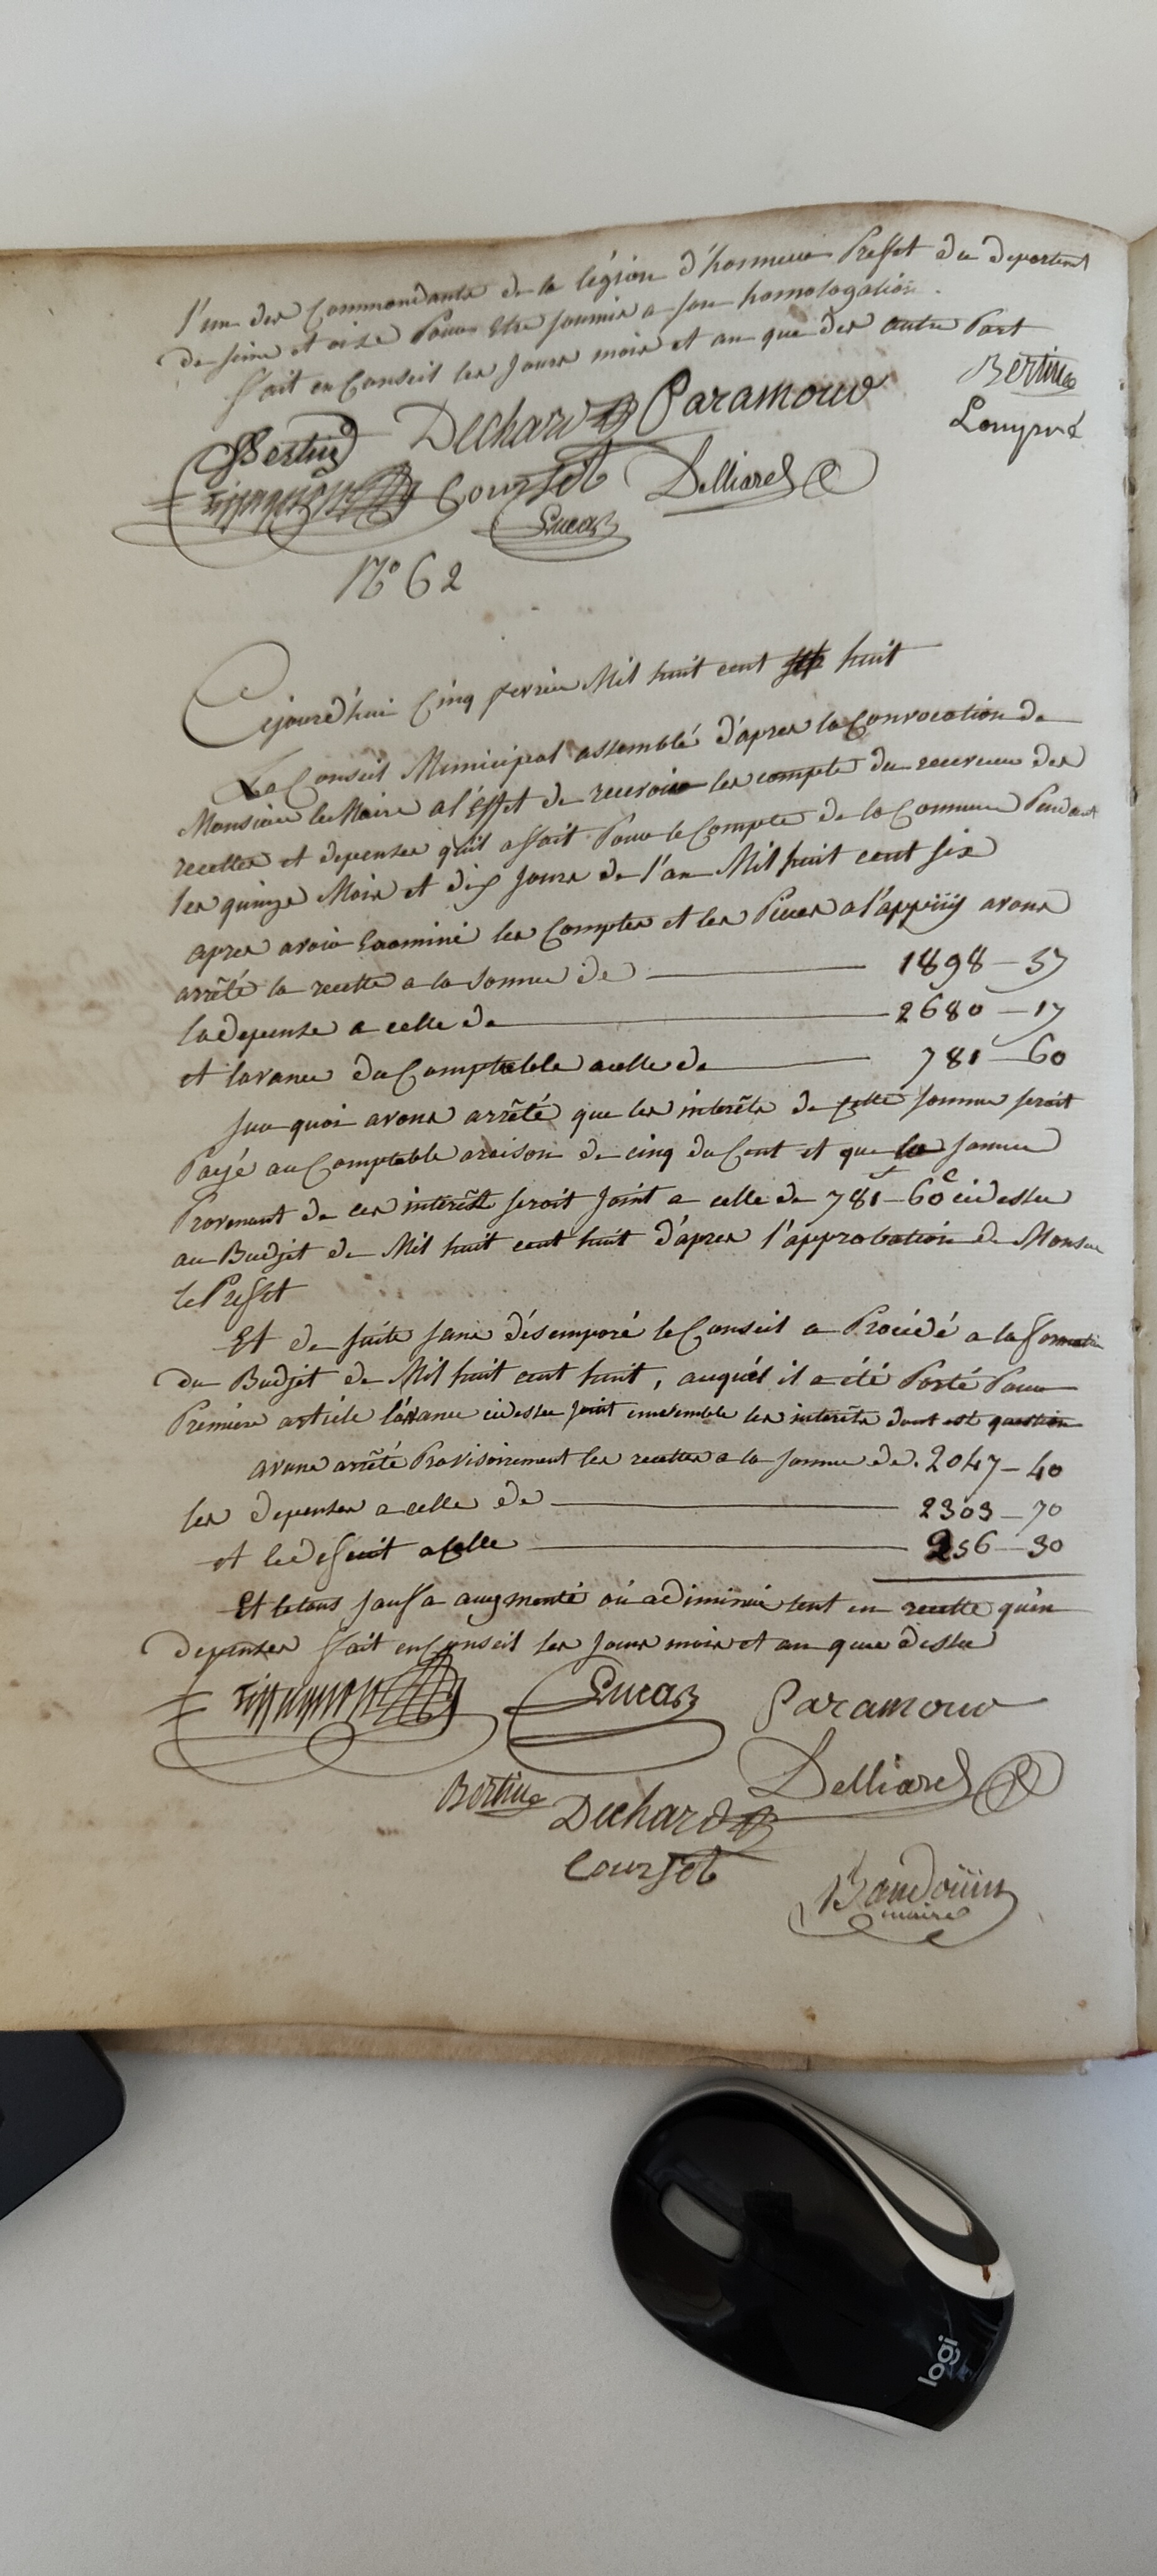 l'un des Commandants de la légion d'honneur Preffet du departement
de seine et oise Pour Etre soumis a son homologation.
fait en Conseil les Jours mois et an que des autre Part
Bertin Dechard Paramour Bertin
Courset Delliard
Lucas
N° 62
Cejourd'hui Cinq fevrier Mil huit cent huit
Le Conseil Municipal assemblé d'apres la Convocation de
Monsieur le Maire a l'Effet de recevoir les compte du receveur des
recettes et depenses qu'il a fait Pour le Compte de la Commune Pendant
les quinze Mois et dix Jours de l'an Mil huit cent six
apres avoir Examiné les Comptes et les Pieces a l'appuÿ avons
arrêté la recette a la Somme de 1898 - 57
la depense a celle de 2680 - 17
et lavance du Comptable acelle de 781 - 60
sur quoi avons arrêté que les interêts de cette somme seroit
Payé au Comptable araison de cinq du Cent et que la somme
Provenant de ces interêst seroit Joint a celle de 781 - 60c cidessu
au Budjet de Mil huit cent huit d'apres l'approbation de Monsieur
le Preffet
Et de suite sans désemparé le Conseil a Procédé a la formation
du Budjet de Mil huit cent huit, auquél il a été Porté Pour
Premiere article l'avance cidessu joint ensemble les interêts dont est question
avons arrêté Provisoirement les recettes a la somme de. 2047 - 40
les depenses a celle de 2303 - 70
et le defficit a celle 256 - 30
Et le tous sauf a augmenté où a diminué tent en recette qu'en
depenses fait en Conseil les Jours mois et an que dessu
Lucas Paramour
Delliard
Bertin Dechard
Courset
Baudoüin
maire
logi